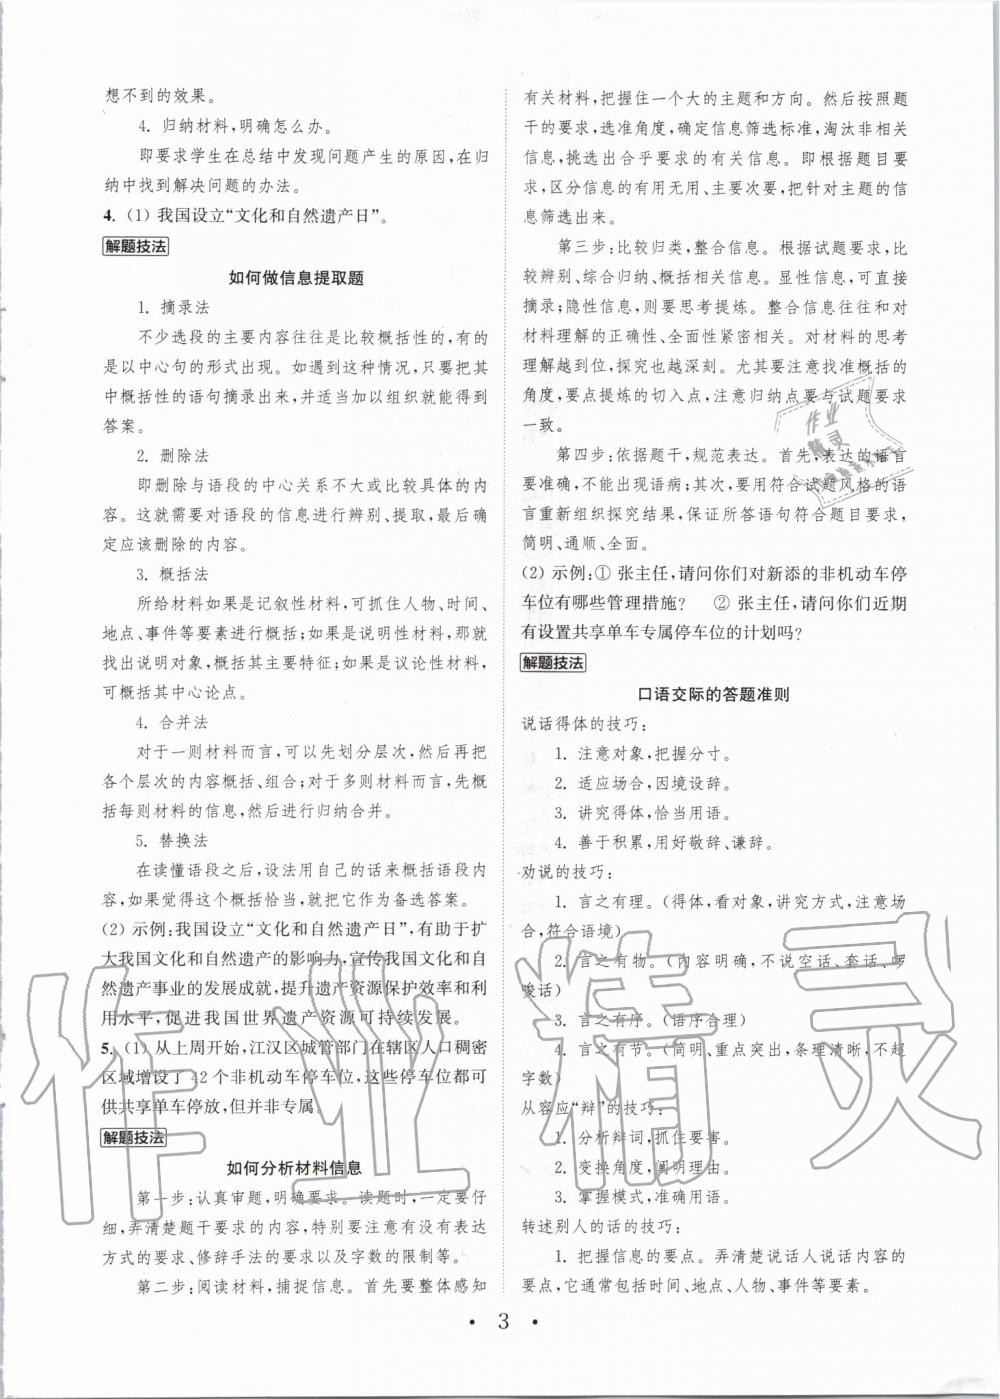 想不到的效果。
4. 归纳材料,明确怎么办。
即要求学生在总结中发现问题产生的原因,在归
纳中找到解决问题的办法。
4. (1) 我国设立“文化和自然遗产日”。
解题技法
如何做信息提取题
1. 摘录法
不少选段的主要内容往往是比较概括性的,有的
是以中心句的形式出现。如遇到这种情况,只要把其
中概括性的语句摘录出来,并适当加以组织就能得到
答案。
2. 删除法
即删除与语段的中心关系不大或比较具体的内
容。这就需要对语段的信息进行辨别、提取,最后确
定应该删除的内容。
3. 概括法
所给材料如果是记叙性材料,可抓住人物、时间、
地点、事件等要素进行概括;如果是说明性材料,可
找出说明对象,概括其主要特征;如果是议论性材料,
可概括其中心论点。
4. 合并法
对于一则材料而言,可以先划分层次,然后再把
各个层次的内容概括、组合;对于多则材料而言,先概
括每则材料的信息,然后进行归纳合并。
5. 替换法
在读懂语段之后,设法用自己的话来概括语段内
容,如果觉得这个概括恰当,就把它作为备选答案。
(2) 示例:我国设立“文化和自然遗产日”,有助于扩
大我国文化和自然遗产的影响力,宣传我国文化和自
然遗产事业的发展成就,提升遗产资源保护效率和利
用水平,促进我国世界遗产资源可持续发展。
5. (1) 从上周开始,江汉区城管部门在辖区人口稠密
区域增设了 42 个非机动车停车位,这些停车位都可
供共享单车停放,但并非专属。
解题技法
如何分析材料信息
第一步:认真审题,明确要求。读题时,一定要仔
细,弄清楚题干要求的内容,特别要注意有没有表达
方式的要求、修辞手法的要求以及字数的限制等。
第二步:阅读材料,捕捉信息。首先要整体感知
有关材料,把握住一个大的主题和方向。然后按照题
干的要求,选准角度,确定信息筛选标准,淘汰非相关
信息,挑选出合乎要求的有关信息。即根据题目要
求,区分信息的有用无用、主要次要,把针对主题的信
息筛选出来。
第三步:比较归类,整合信息。根据试题要求,比
较辨别、综合归纳、概括相关信息。显性信息,可直接
摘录;隐性信息,则要思考提炼。整合信息往往和对
材料理解的正确性、全面性紧密相关。对材料的思考
理解越到位,探究也越深刻。尤其要注意找准概括的
角度,要点提炼的切入点,注意归纳点要与试题要求
一致。
第四步:依据题干,规范表达。首先,表达的语言
要准确,不能出现语病;其次,要用符合试题风格的语
言重新组织探究结果,保证所答语句符合题目要求,
简明、通顺、全面。
(2) 示例:① 张主任,请问你们对新添的非机动车停
车位有哪些管理措施? ② 张主任,请问你们近期
有设置共享单车专属停车位的计划吗?
解题技法
口语交际的答题准则
说话得体的技巧:
1. 注意对象,把握分寸。
2. 适应场合,因境设辞。
3. 讲究得体,恰当用语。
4. 善于积累,用好敬辞、谦辞。
劝说的技巧:
1. 言之有理。(得体,看对象,讲究方式,注意场
合,符合语境)
2. 言之有物。(内容明确,不说空话、套话、啰
唆话)
3. 言之有序。(语序合理)
4. 言之有节。(简明、重点突出,条理清晰,不超
字数)
从容应“辩”的技巧:
1. 分析辩词,抓住要害。
2. 变换角度,阐明理由。
3. 掌握模式,准确用语。
转述别人的话的技巧:
1. 把握信息的要点。弄清楚说话人说话内容的
要点,它通常包括时间、地点、人物、事件等要素。
• 3 •
作业精灵
作业
精灵